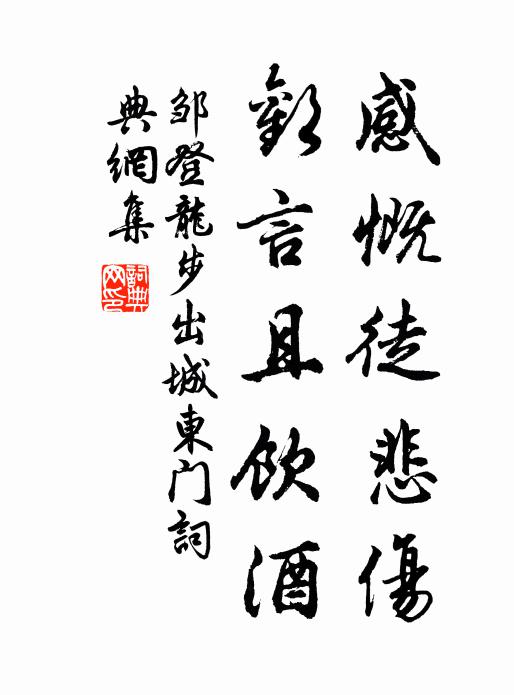 感慨徒悲傷
歡言且飲酒
邹登龍步出城東門詞
典網集
詞典
网印